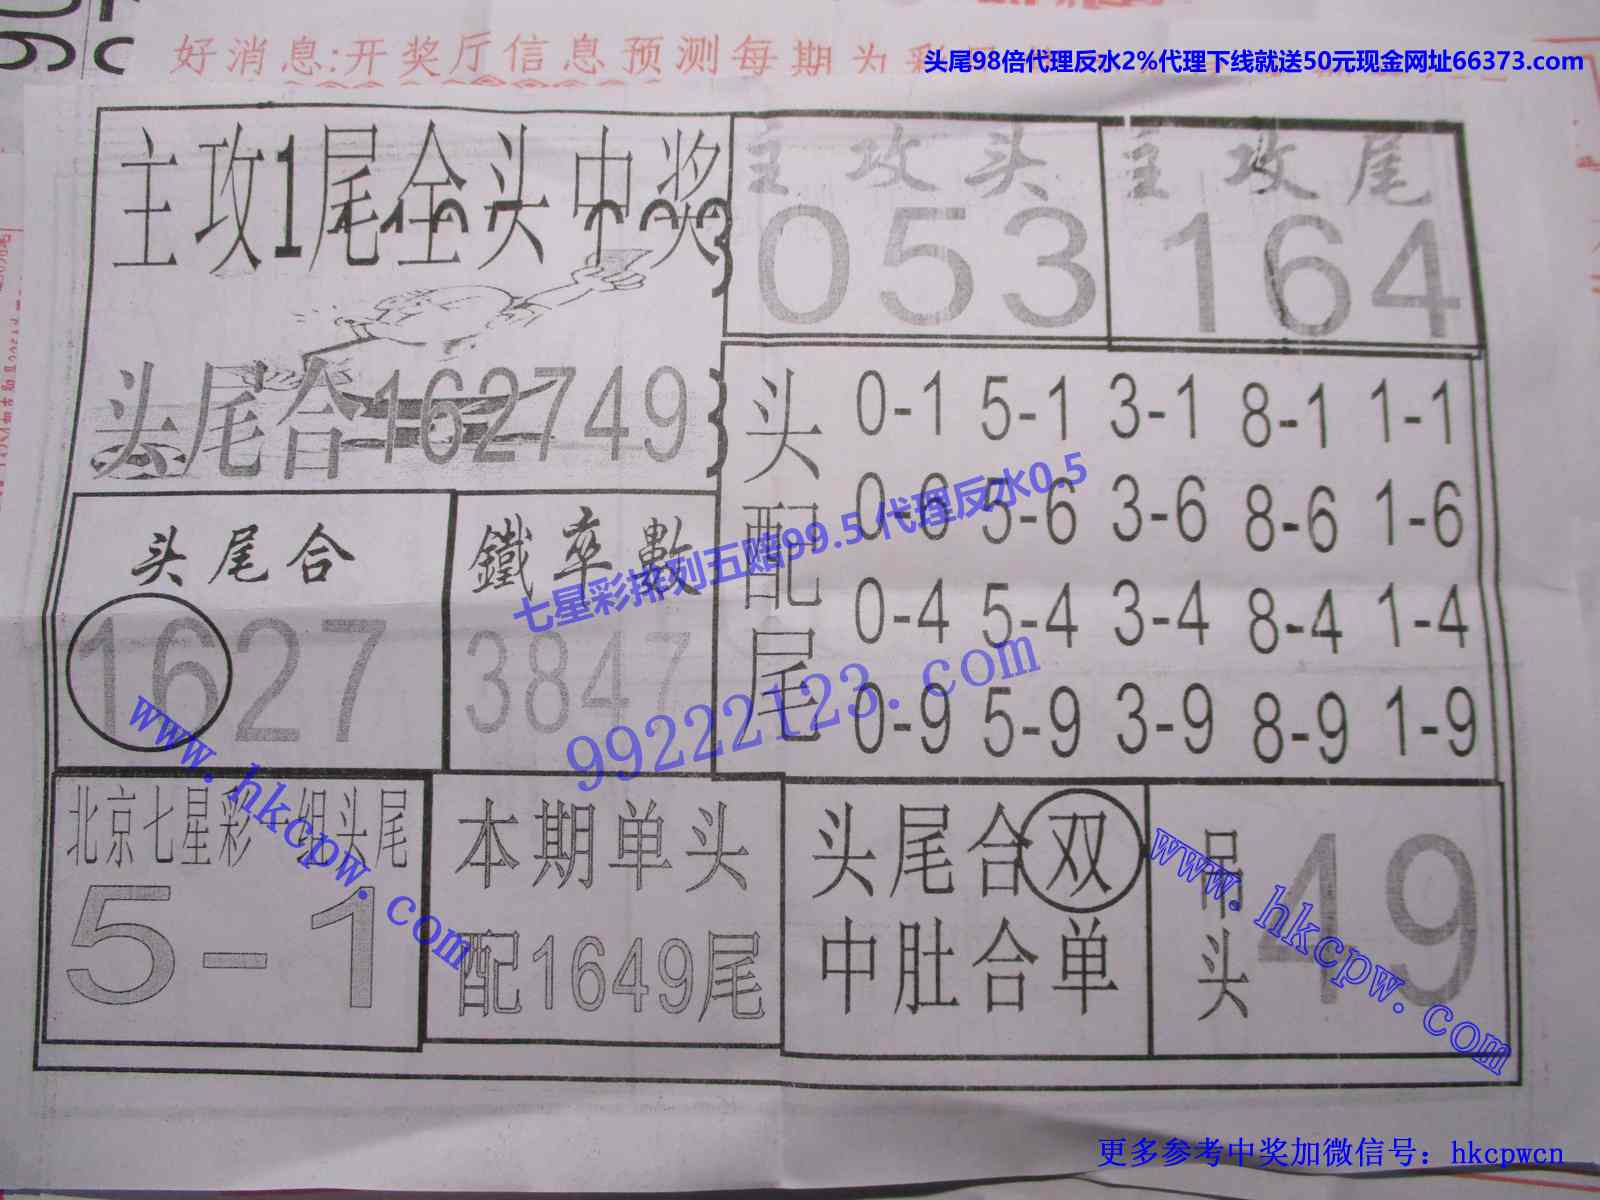 好消息:开奖厅信息预测每期为彩
头尾98倍代理反水2%代理下线就送50元现金网址66373.com
主攻1尾全头中奖
主攻头
053
主攻尾
164
头尾合162749
头配尾
0-1 5-1 3-1 8-1 1-1
0-6 5-6 3-6 8-6 1-6
0-4 5-4 3-4 8-4 1-4
0-9 5-9 3-9 8-9 1-9
头尾合
1627
鐵率數
3847
七星彩排列五赔99.5 代理反水0.5
99222123.com
www.hkcpw.com
北京七星彩一组头尾
5-1
本期单头
配1649尾
头尾合双
中肚合单
吊头
49
www.hkcpw.com
更多参考中奖加微信号：hkcpwcn